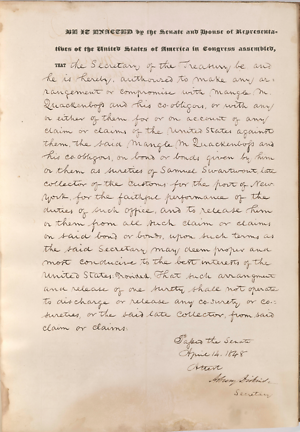 BE IT ENACTED by the Senate and House of Representa-
tives of the United States of America in Congress assembled,
THAT the Secretary of the Treasury be and
he is hereby, authorized to make any ar-
rangement or compromise with Mangle M.
Quackenboss and his co obligors, or with any
or either of them for or on account of any
claim or claims of the United States against
them, the said Mangle M Quackenboss and
his co obligors, on bond or bonds given by him
or them as sureties of Samuel Swartwout late
collector of the Customs for the port of New
York for the faithful performance of the
duties of such office, and to release him
or them from all such claim or claims
on said bond or bonds, upon such terms as
the said Secretary may deem proper and
most conducive to the best interests of the
United States: Provided, That such arrangment
and release of one surety shall not operate
to discharge or release any co-surety or co-
sureties, or the said late Collector, from said
claim or claims.
Passed the Senate
April 14. 1848
Attest
Asbury Dickins,
Secretary